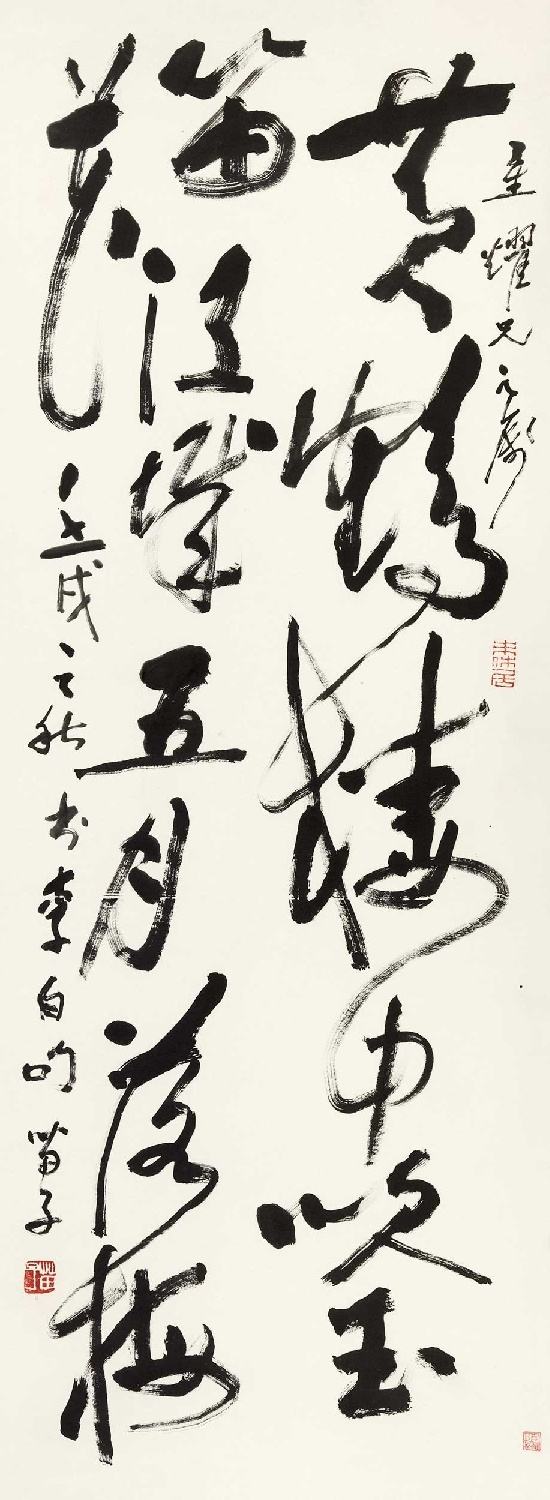 至耀兄之属
黄鹤楼中吹玉
笛江城五月落梅
花
壬戌之秋书李白句苗子